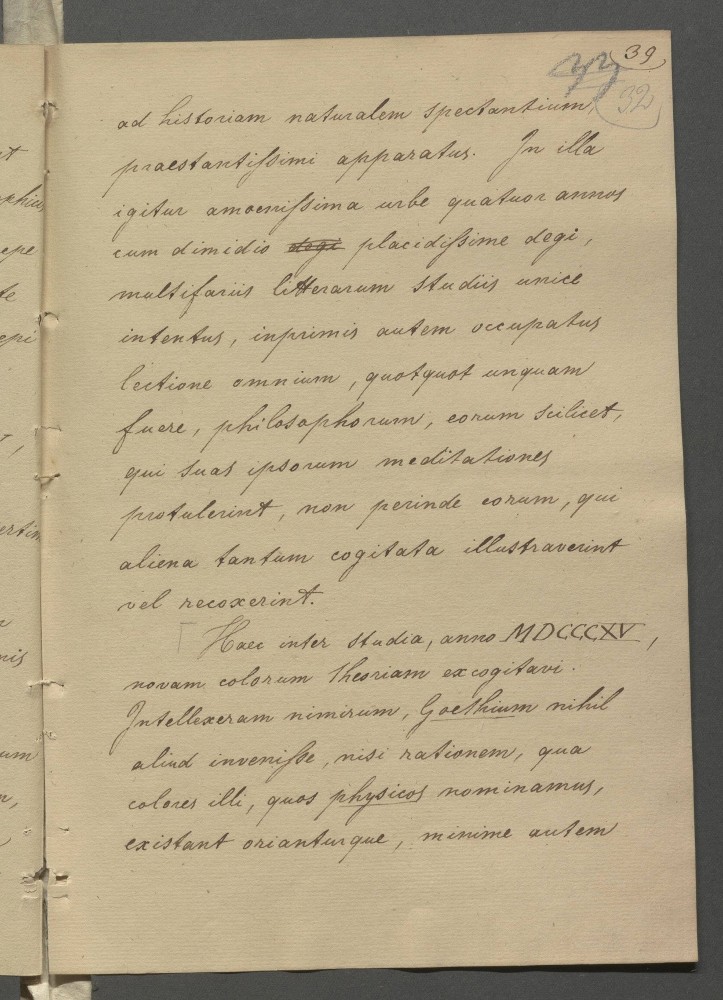 39
33
32
ad historiam naturalem spectantium,
praestantissimi apparatus. In illa
igitur amoenissima urbe quatuor annos
cum dimidio degi placidissime degi,
multifariis litterarum studiis unice
intentus, inprimis autem occupatus
lectione omnium, quotquot unquam
fuere, philosophorum, eorum scilicet,
qui suas ipsorum meditationes
protulerint, non perinde eorum, qui
aliena tantum cogitata illustraverint
vel recoxerint.
Haec inter studia, anno MDCCCXV,
novam colorum theoriam excogitavi.
Intellexeram nimirum, Goethium nihil
aliud invenisse, nisi rationem, qua
colores illi, quos physicos nominamus,
existant orianturque, minime autem